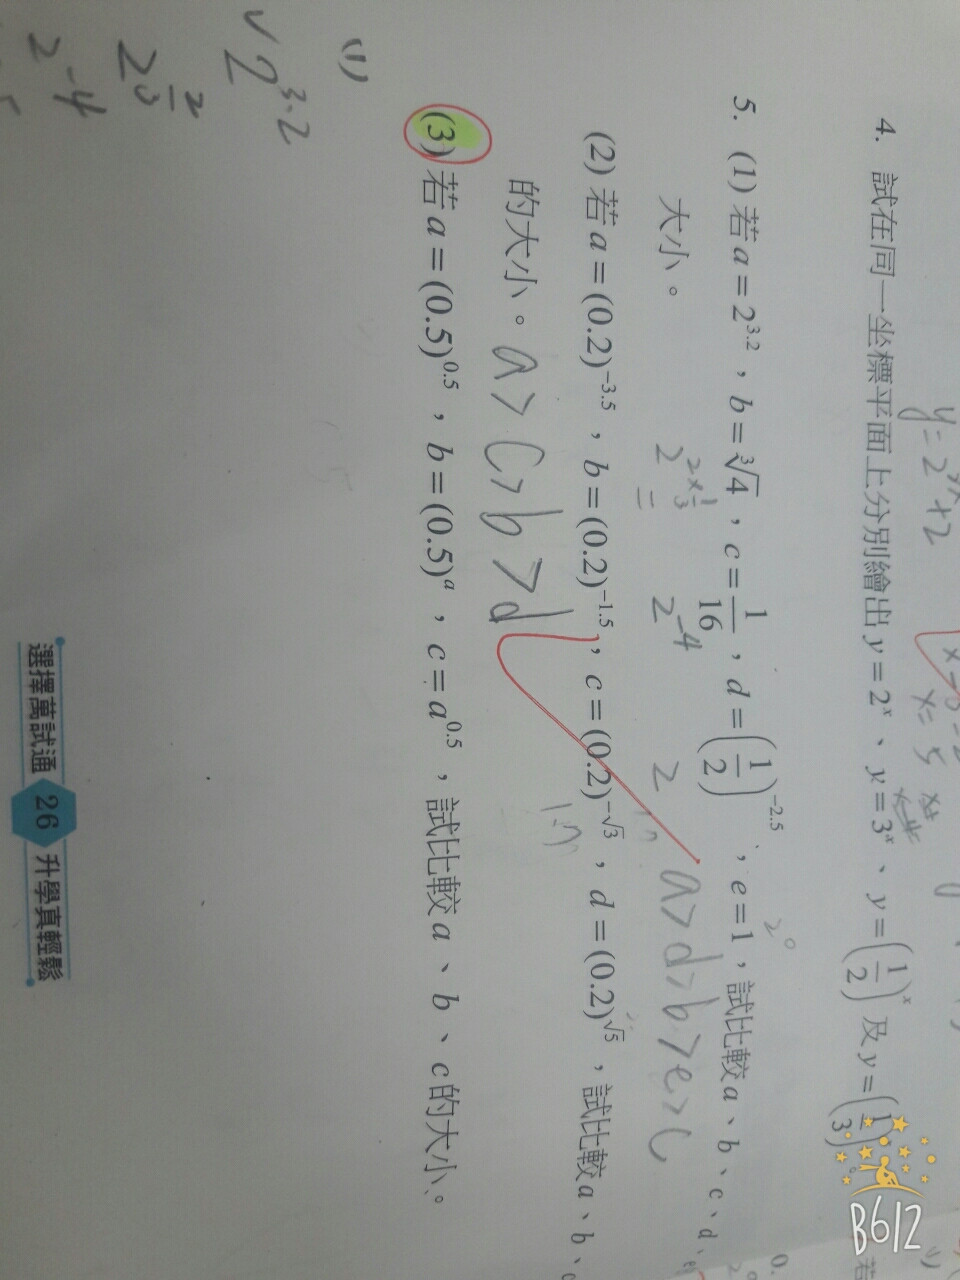 y=2^x+2
4. 試在同一坐標平面上分別繪出 y=2^x、y=3^x、y=(1/2)^x 及 y=(1/3)
5. (1) 若 a=2^3.2，b=∛4，c=1/16，d=(1/2)^-2.5，e=1，試比較 a、b、c、d、
2^(2×1/3) 2^-4 2 2^0
大小。 a>d>b>e>c
(2) 若 a=(0.2)^-3.5，b=(0.2)^-1.5，c=(0.2)^-√3，d=(0.2)^√5，試比較 a、b、
的大小。 a>c>b>d
(3) 若 a=(0.5)^0.5，b=(0.5)^a，c=a^0.5，試比較 a、b、c 的大小。
(1)
2^3.2
2^(2/3)
2^-4
選擇萬試通 26 升學真輕鬆
B612